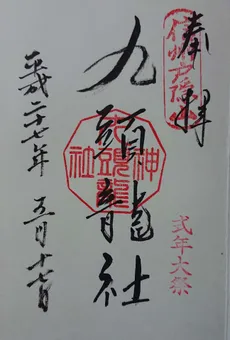 奉拝
信州戸隠山
式年大祭
九頭龍社
九頭龍神社
平成二十七年 五月十七日